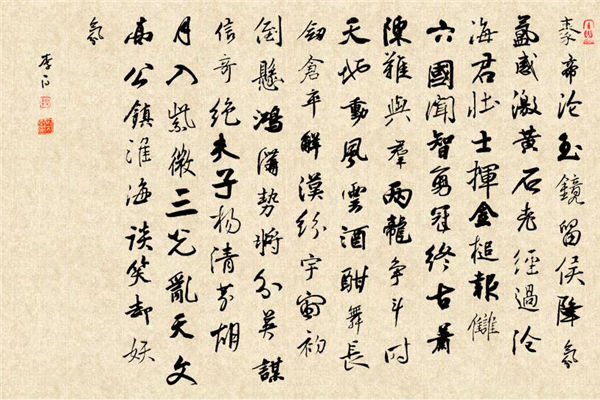 秦帝淪玉鏡留侯降氛
氳感激黃石老經過滄
海君壯士揮金槌報讎
六國聞智勇冠終古蕭
陳難與羣兩龍爭斗时
天地動風雲酒酣舞長
劍倉卒解漢紛宇宙初
倒懸鴻溝勢將分英謀
信奇絕夫子揚清芬胡
月入紫微三光亂天文
高公鎮淮海談笑却妖
氛
李白